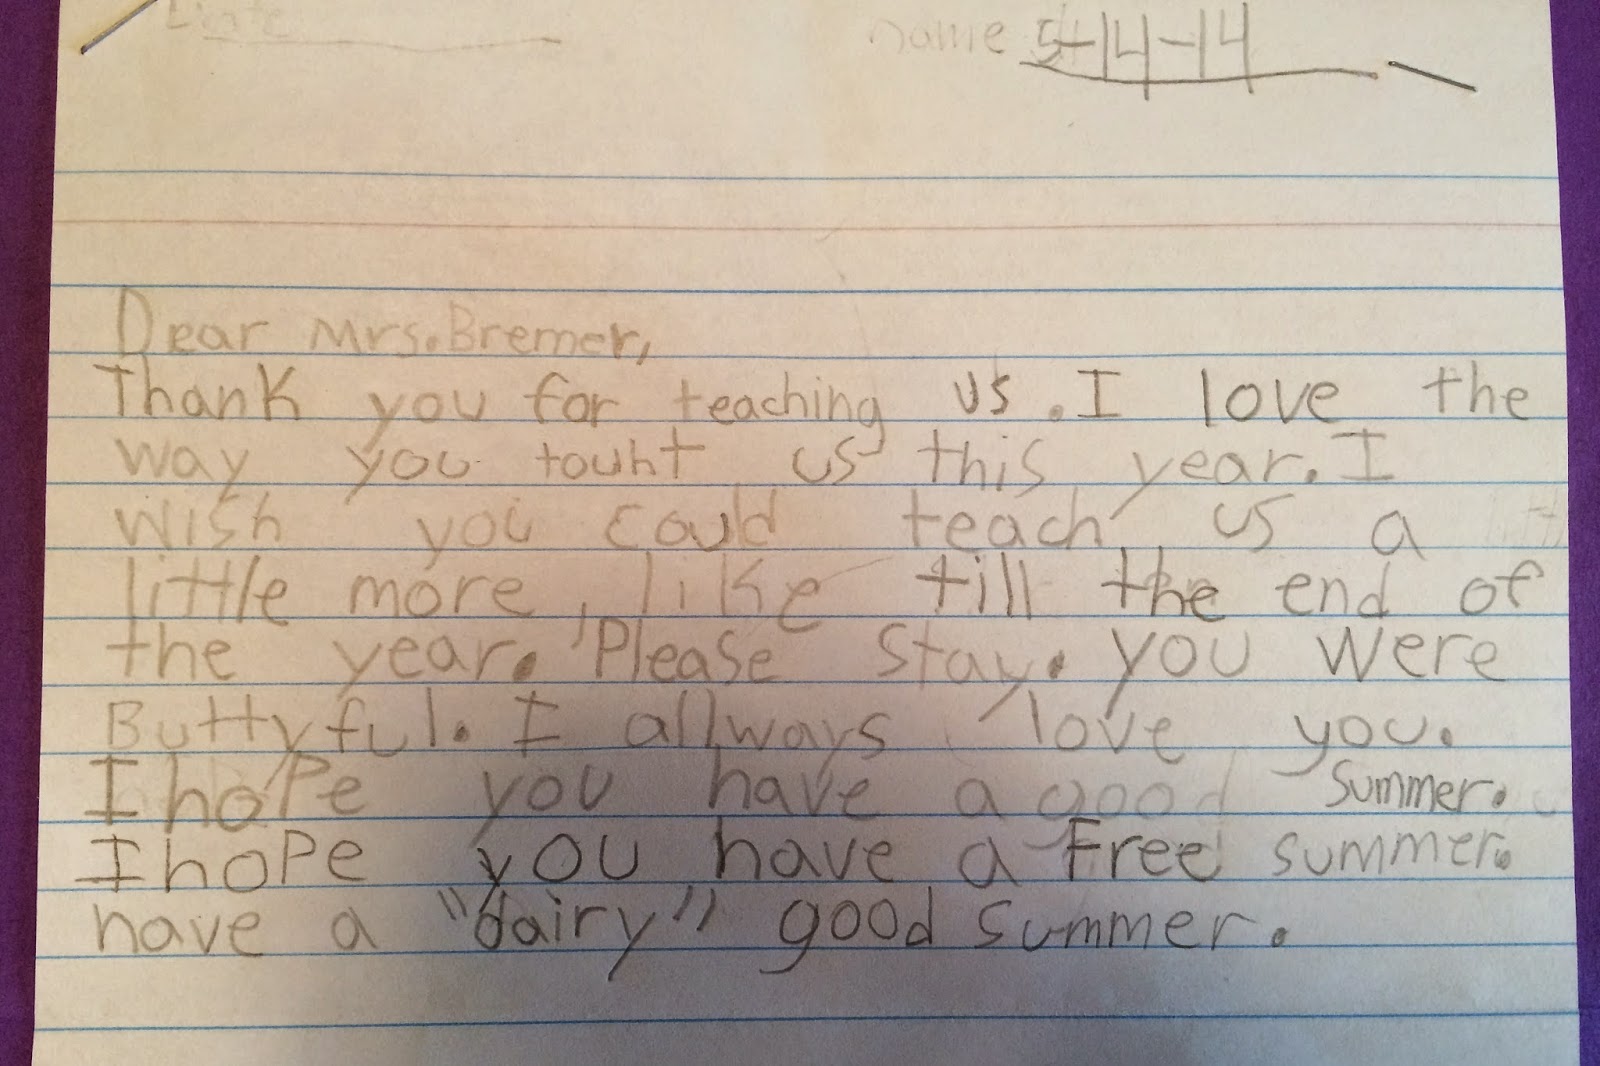 Date name 5-14-14
Dear Mrs. Bremer,
Thank you for teaching us. I love the
way you touht us this year. I
wish you could teach us a
little more, like till the end of
the year. Please stay. you were
Buttyful. I allways love you.
I hope you have a good summer.
I hope you have a free summer.
have a "dairy" good summer.